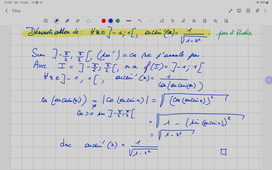 Démonstration de : ∀x∈]-1,1[, arcsin'(x) = 1/√(1-x²)
Sur ]-π/2, π/2[, (sin') = cos ne s'annule pas
Avec I = ]-π/2, π/2[, on a f(I) = ]-1, 1[
∀x∈]-1, 1[, arcsin'(x) = 1/cos(arcsin(x))
cos(arcsin(x)) = |cos(arcsin(x))| = √((cos(arcsin(x)))²)
cos > 0 sur ]-π/2, π/2[
= √(1 - (sin(arcsin(x)))²)
= √(1-x²)
donc arcsin'(x) = 1/√(1-x²) □